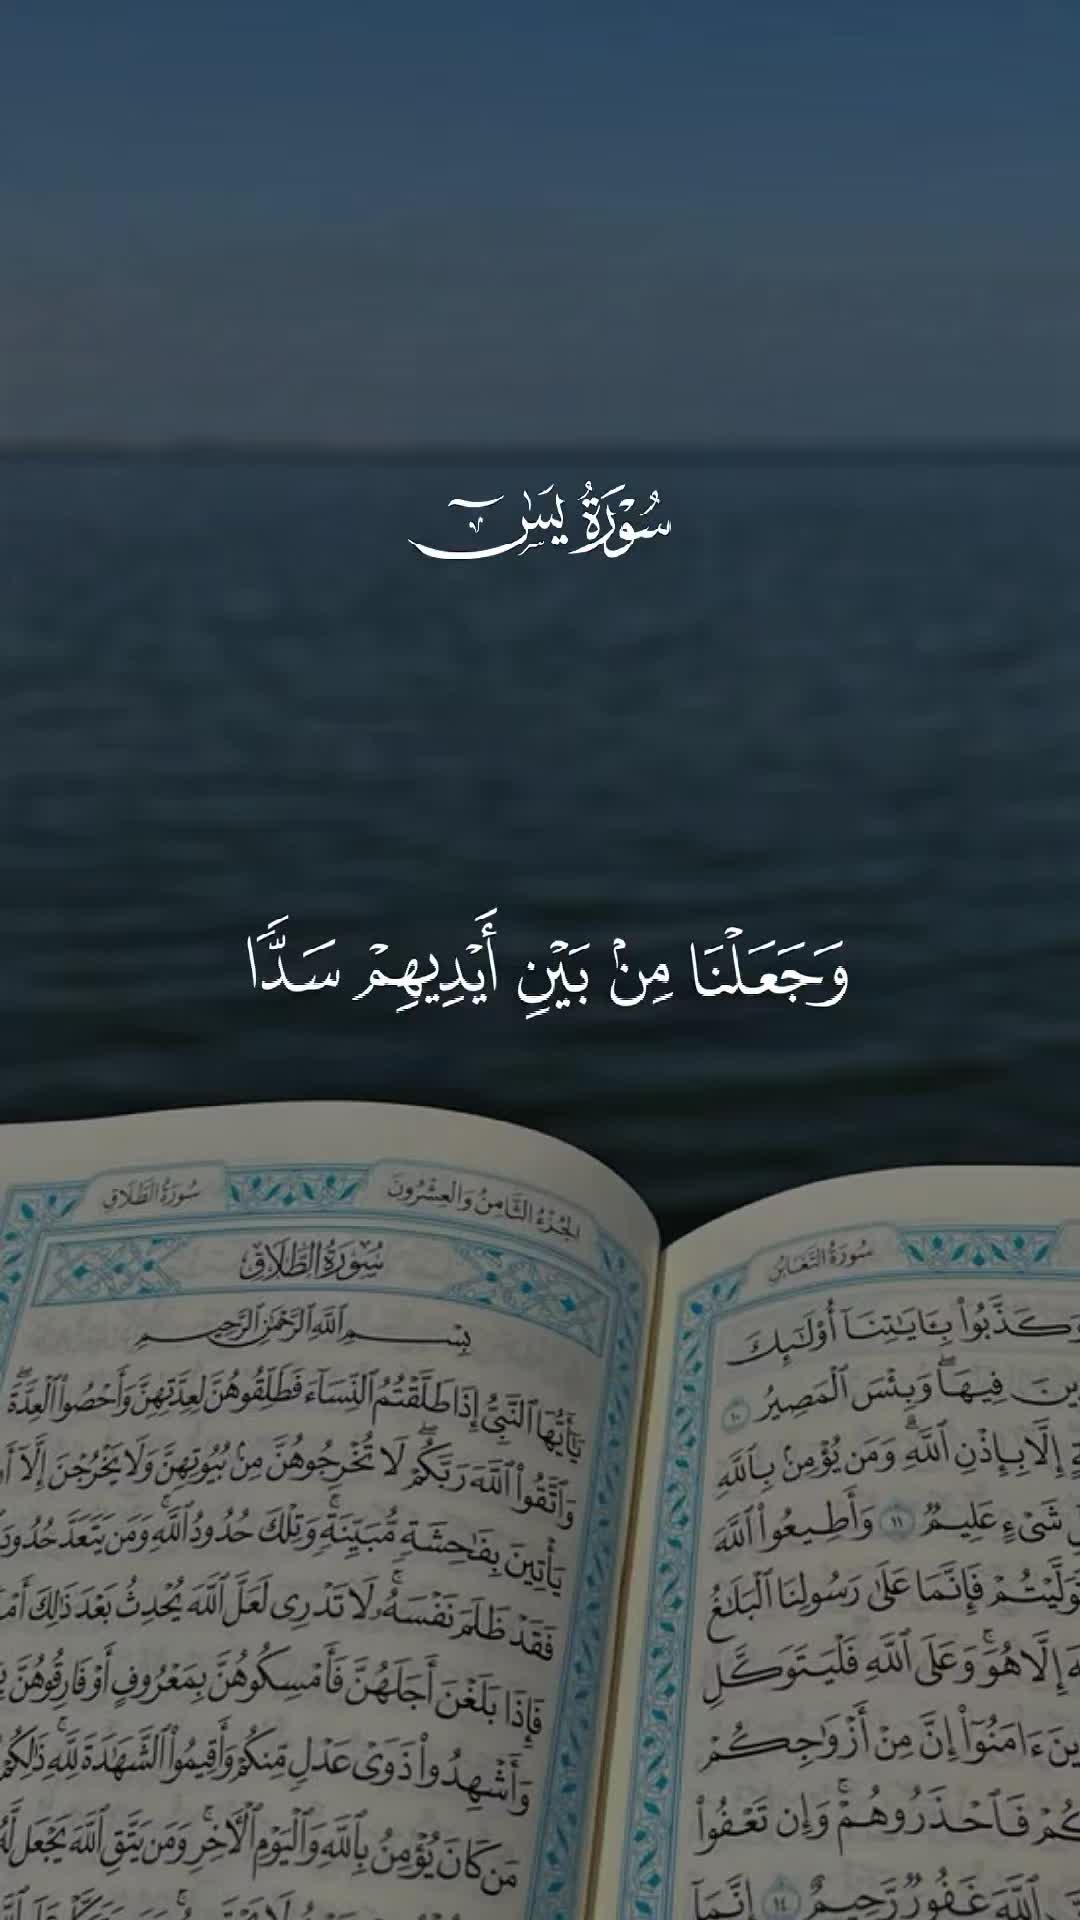 سُوْرَةُ يسٓ
وَجَعَلْنَا مِنۢ بَيْنِ أَيْدِيهِمْ سَدًّا
سُورَةُ الطَّلَاقِ
الجُزْءُ الثَّامِنُ وَالعِشْرُونَ
سُورَةُ الطَّلَاقِ
بِسْمِ ٱللَّهِ ٱلرَّحْمَٰنِ ٱلرَّحِيمِ
يَٰٓأَيُّهَا ٱلنَّبِىُّ إِذَا طَلَّقْتُمُ ٱلنِّسَآءَ فَطَلِّقُوهُنَّ لِعِدَّتِهِنَّ وَأَحْصُوا۟ ٱلْعِدَّةَۖ
وَٱتَّقُوا۟ ٱللَّهَ رَبَّكُمْۖ لَا تُخْرِجُوهُنَّ مِنۢ بُيُوتِهِنَّ وَلَا يَخْرُجْنَ إِلَّآ
يَأْتِينَ بِفَٰحِشَةٍ مُّبَيِّنَةٍۚ وَتِلْكَ حُدُودُ ٱللَّهِۚ وَمَن يَتَعَدَّ حُدُودَ
فَقَدْ ظَلَمَ نَفْسَهُۥۚ لَا تَدْرِى لَعَلَّ ٱللَّهَ يُحْدِثُ بَعْدَ ذَٰلِكَ
فَإِذَا بَلَغْنَ أَجَلَهُنَّ فَأَمْسِكُوهُنَّ بِمَعْرُوفٍ أَوْ فَارِقُوهُنَّ
وَأَشْهِدُوا۟ ذَوَىْ عَدْلٍ مِّنكُمْ وَأَقِيمُوا۟ ٱلشَّهَٰدَةَ لِلَّهِۚ ذَٰلِكُمْ
مَن كَانَ يُؤْمِنُ بِٱللَّهِ وَٱلْيَوْمِ ٱلْءَاخِرِۚ وَمَن يَتَّقِ ٱللَّهَ يَجْعَل لَّهُ
سُورَةُ التَّغَابُنِ
وَكَذَّبُوا۟ بِـَٔايَٰتِنَآ أُو۟لَٰٓئِكَ
فِيهَاۖ وَبِئْسَ ٱلْمَصِيرُ ١٠
إِلَّا بِإِذْنِ ٱللَّهِۗ وَمَن يُؤْمِنۢ بِٱللَّهِ
شَىْءٍ عَلِيمٌ ١١ وَأَطِيعُوا۟ ٱللَّهَ
فَإِنَّمَا عَلَىٰ رَسُولِنَا ٱلْبَلَٰغُ
إِلَّا هُوَۚ وَعَلَى ٱللَّهِ فَلْيَتَوَكَّلِ
ءَامَنُوٓا۟ إِنَّ مِنْ أَزْوَٰجِكُمْ
فَٱحْذَرُوهُمْۚ وَإِن تَعْفُوا۟
ٱللَّهَ غَفُورٌ رَّحِيمٌ ١٤ إِنَّمَآ